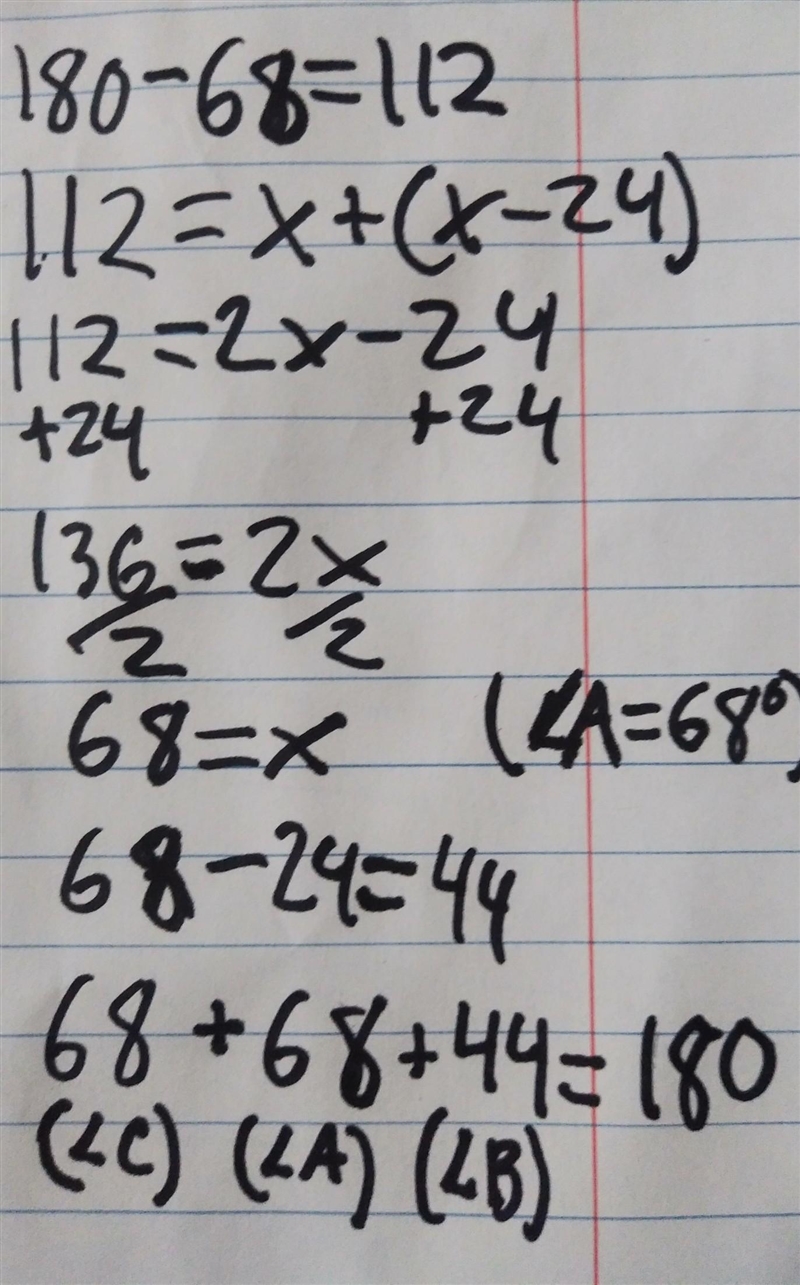 180-68=112
112=x+(x-24)
112=2x-24
+24 +24
136=2x
/2 /2
68=x (∠A=68°)
68-24=44
68+68+44=180
(∠C) (∠A) (∠B)